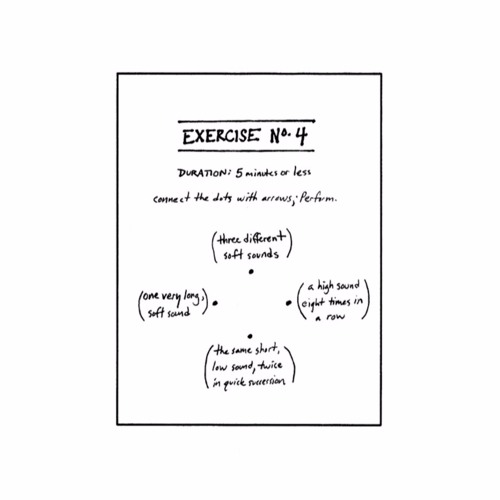 EXERCISE No. 4
DURATION: 5 minutes or less
connect the dots with arrows; Perform.
(three different
soft sounds)
(one very long,
soft sound)
(a high sound
eight times in
a row)
(the same short,
low sound, twice
in quick succession)